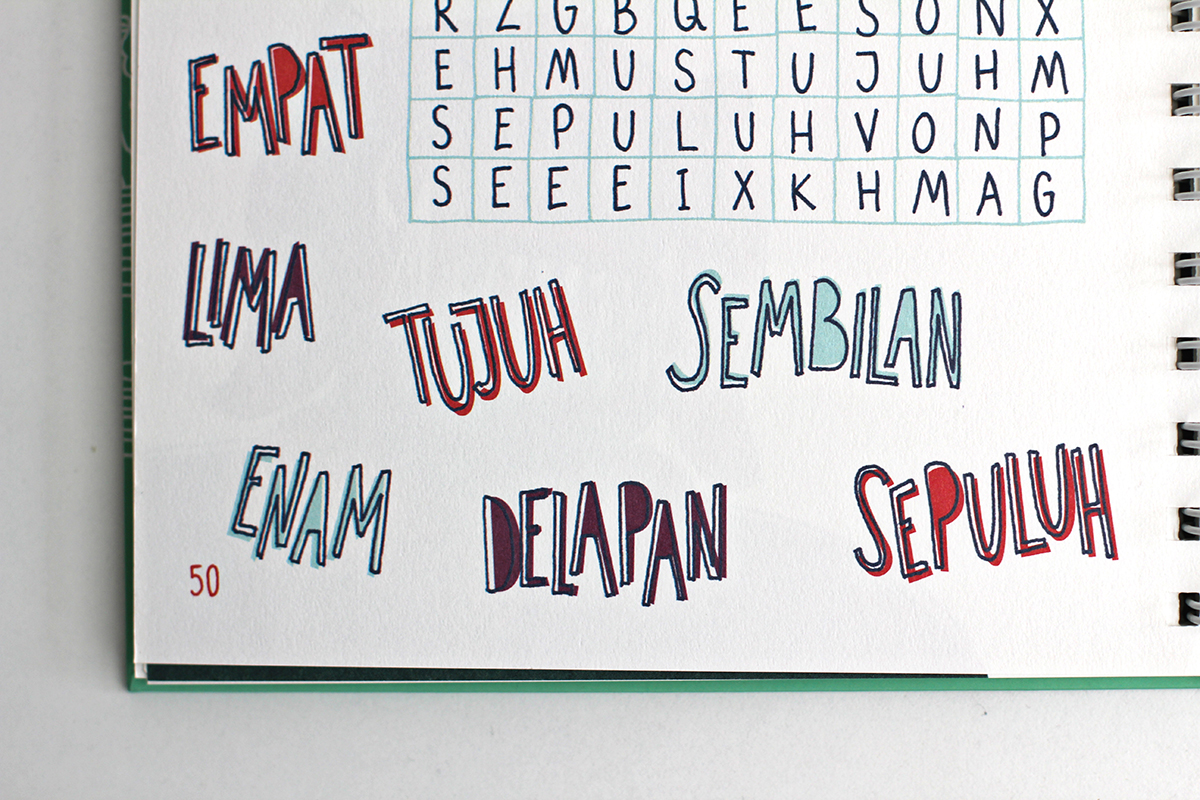 R Z G B Q E E S O N X
E H M U S T U J U H M
S E P U L U H V O N P
S E E E I X K H M A G
EMPAT
LIMA
TUJUH
SEMBILAN
ENAM
DELAPAN
SEPULUH
50